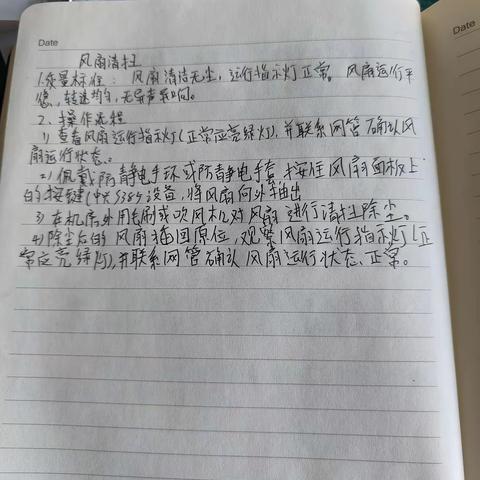 Date
Date
风扇清扫
1.质量标准：风扇清洁无尘，运行指示灯正常。风扇运行平
稳，转速均匀，无异声异响。
2、操作流程
1) 查看风扇运行指示灯(正常应亮绿灯)，并联系网管确认风
扇运行状态。
2) 佩戴防静电手环或防静电手套，按住风扇面板上
的按键(中兴S385设备)，将风扇向外抽出
3) 在机房外用毛刷或吹风机对风扇进行清扫除尘。
4) 除尘后的风扇插回原位，观察风扇运行指示灯(正
常应亮绿灯)，并联系网管确认风扇运行状态正常。